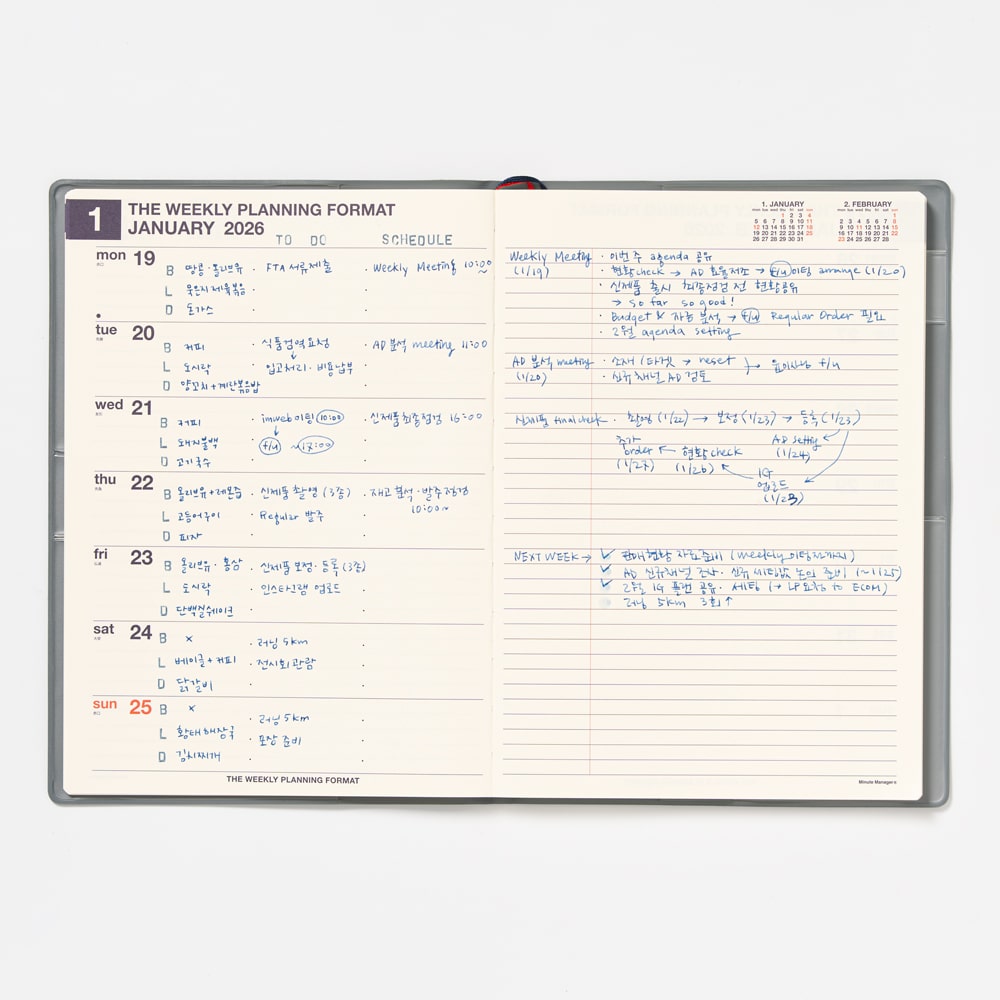 1
THE WEEKLY PLANNING FORMAT
JANUARY 2026
TO DO SCHEDULE
mon 19
B 땅콩·올리브유 · FTA 서류제출 · Weekly Meeting 10:00
L 묵은지제육볶음
D 돈가스
tue 20
B 커피 · 식품검역요청 · AD 분석 meeting 11:00
L 도시락 ↓ 입고처리·비용납부
D 양꼬치+계란볶음밥
wed 21
B 커피 · imweb미팅 10:00 · 신제품최종점검 16:00
L 돼지불백 ↓ f/u ~17:00
D 고기국수
thu 22
B 올리브유+레몬즙 · 신제품 촬영 (3종) · 재고 분석·발주 점검
L 고등어구이 · Regular 발주 10:00~
D 피자
fri 23
B 올리브유·홍삼 · 신제품 보정·등록 (3종)
L 도시락 · 인스타그램 업로드
D 단백질쉐이크
sat 24
B × · 러닝 5km
L 베이글+커피 · 전시회 관람
D 닭갈비
sun 25
B × · 러닝 5km
L 황태해장국 · 포장 준비
D 김치찌개
THE WEEKLY PLANNING FORMAT
1. JANUARY
mon tue wed thu fri sat sun
1 2 3 4
5 6 7 8 9 10 11
12 13 14 15 16 17 18
19 20 21 22 23 24 25
26 27 28 29 30 31
2. FEBRUARY
mon tue wed thu fri sat sun
1
2 3 4 5 6 7 8
9 10 11 12 13 14 15
16 17 18 19 20 21 22
23 24 25 26 27 28
Weekly Meeting · 이번주 agenda 공유
(1/19) · 현황check → AD 효율저조 → f/u 미팅 arrange (1/20)
· 신제품 출시 최종점검 전 현황공유
→ so far so good!
· Budget & 자능 분석 → f/u Regular Order 필요
· 2월 agenda setting
AD 분석 meeting · 소재/타겟 → reset → f/u
(1/20) · 신규채널 AD 검토
신제품 final check · 촬영 (1/22) → 보정 (1/23) → 등록 (1/23)
AD setting
(1/24)
추가 order ← 현황check
(1/27) (1/26)
IG 업로드
(1/23)
NEXT WEEK → ✓ 판매현황 자료준비 (weekly 미팅전까지)
✓ AD 신규채널 조사·신규 세팅값 논의 준비 (~1/25)
✓ 2월 IG 플랜 공유·세팅 (→ LP요청 to ECOM)
러닝 5km 3회↑
Minute Manager